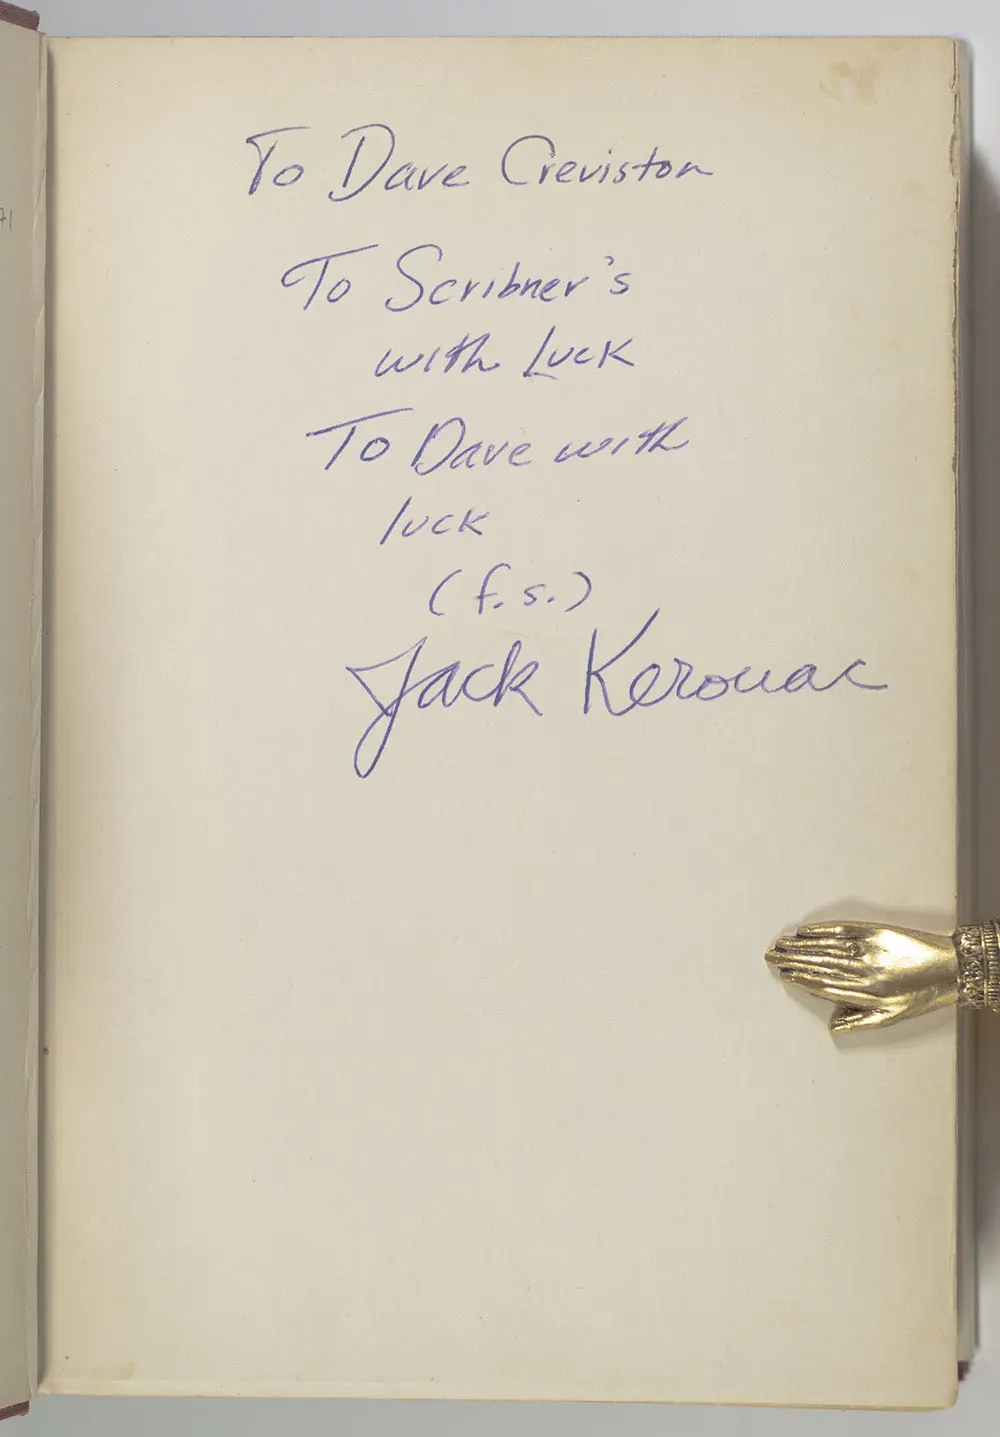 To Dave Creviston
To Scribner's
with Luck
To Dave with
luck
(f.s.)
Jack Kerouac